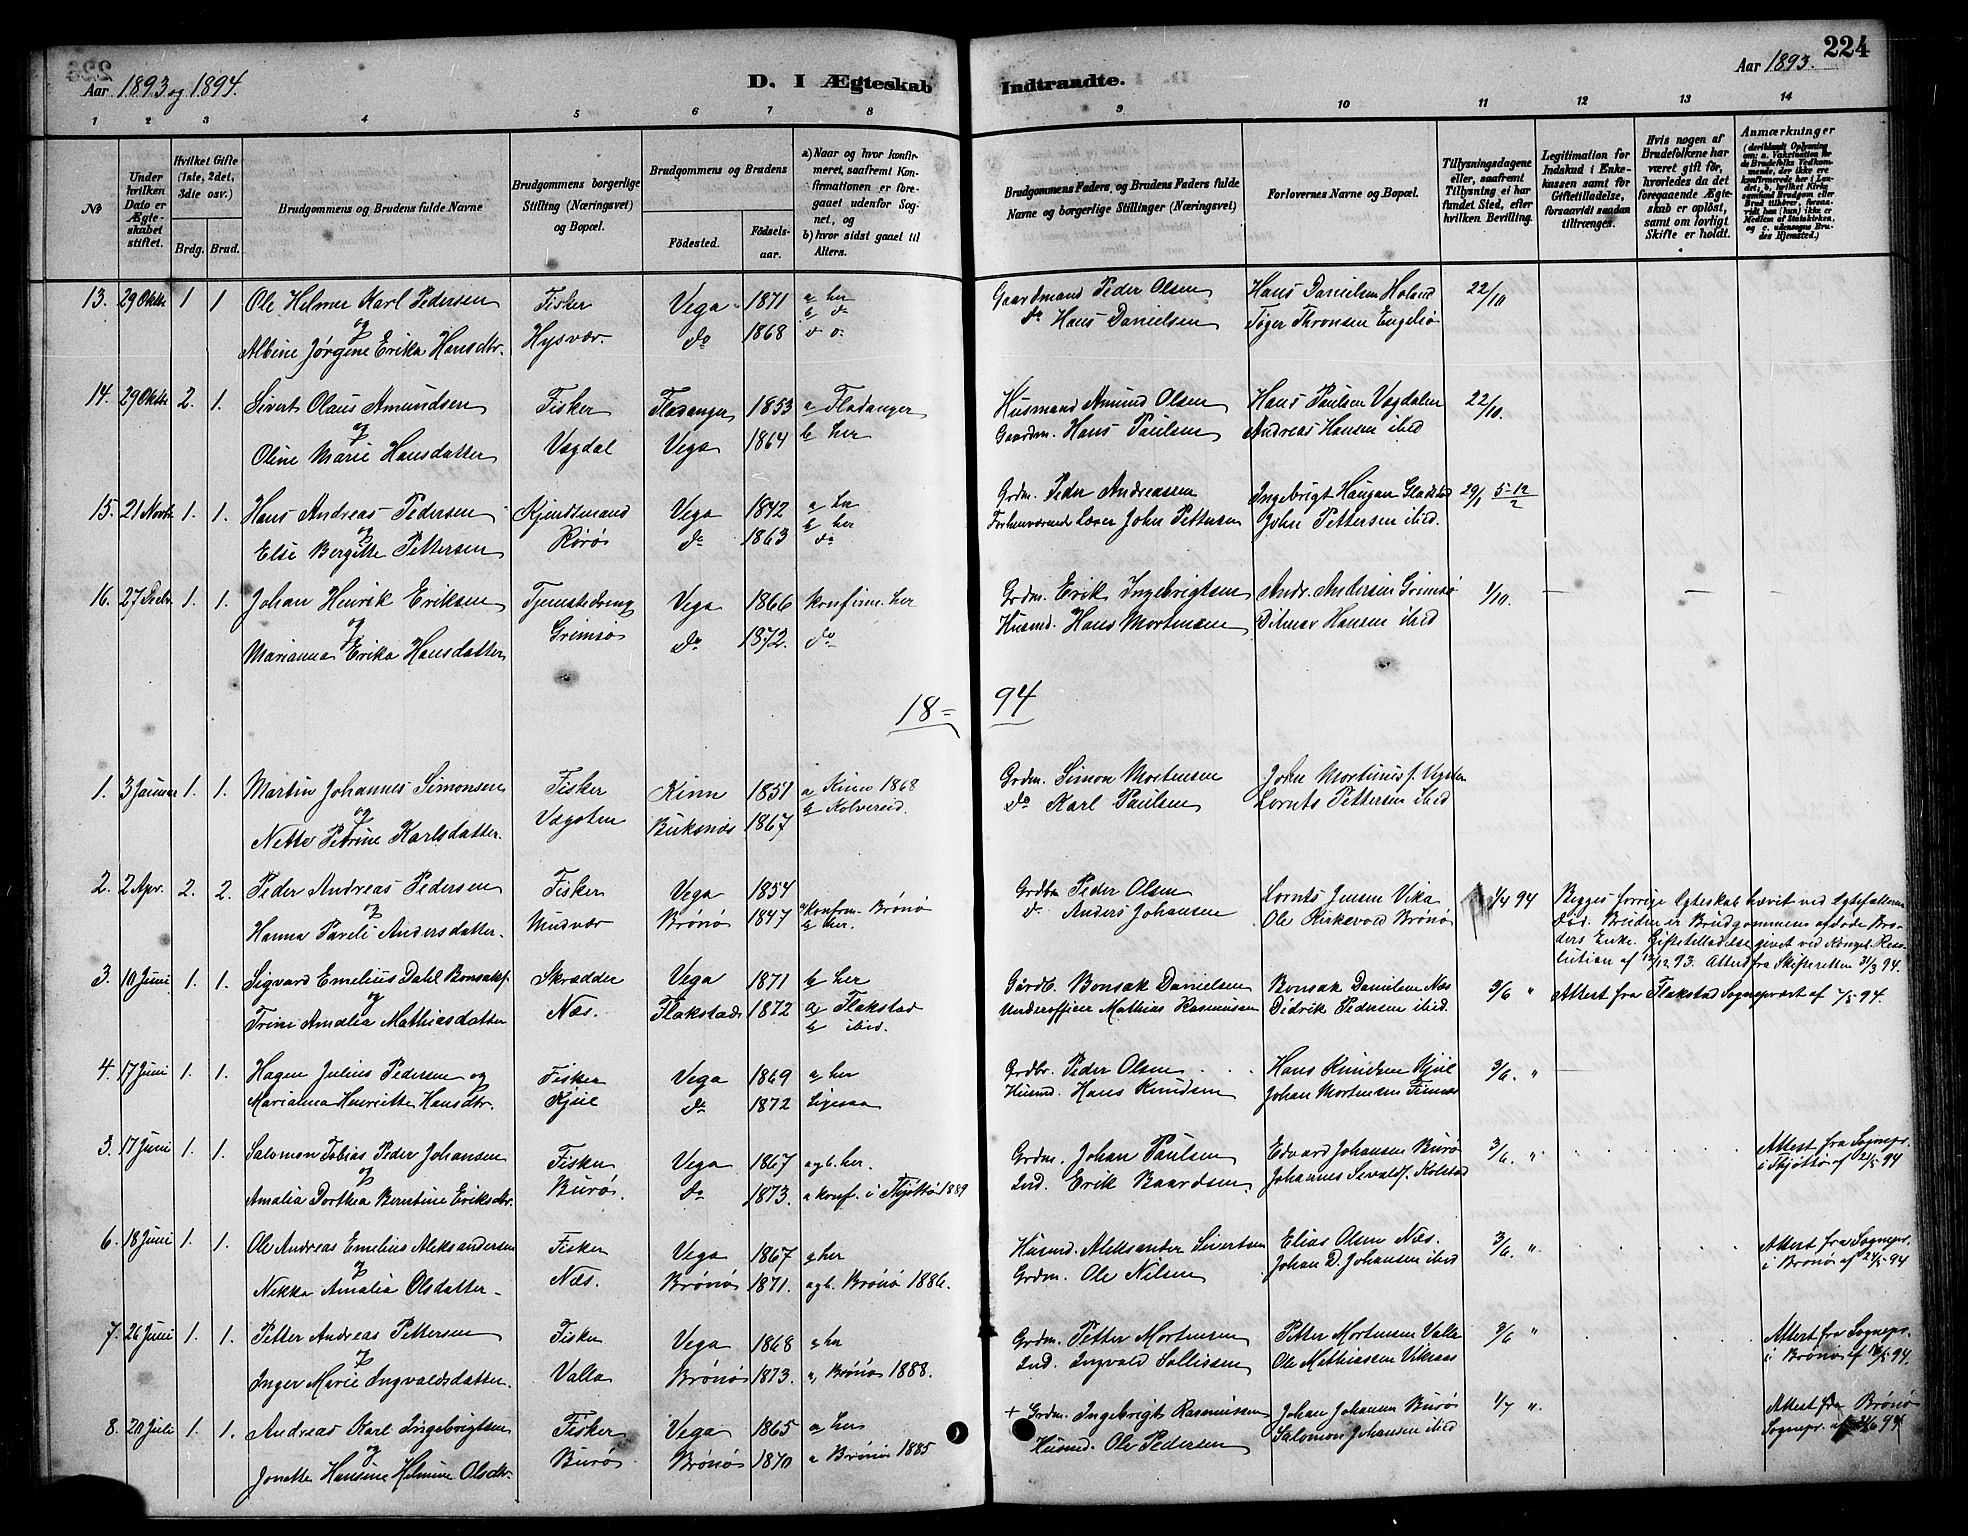 224
Aar 1893 og 1894.
D. I Ægteskab Indtraadte.
Aar 1893.
1 2 3 4 5 6 7 8 9 10 11 12 13 14
No
Under hvilken Dato er Ægteskabet stiftet.
Hvilket Gifte (1ste, 2det, 3die osv.)
Brdg. Brud.
Brudgommens og Brudens fulde Navne
Brudgommens borgerlige Stilling (Næringsvei) og Bopæl.
Brudgommens og Brudens
Fødested. Fødselsaar.
a) Naar og hvor konfirmeret, saafremt Konfirmationen er foregaaet udenfor Sognet, og
b) hvor sidst gaaet til Alters.
Brudgommens Faders, og Brudens Faders fulde Navne og borgerlige Stillinger (Næringsvei)
Forlovernes Navne og Bopæl.
Tillysningsdagene eller, saafremt Tillysning ei har fundet Sted, efter hvilken Bevilling.
Legitimation for Indskud i Enkekassen samt for Giftetilladelse, forsaavidt saadan tiltrænges.
Hvis nogen af Brudefolkene har været gift før, hvorledes da det foregaaende Ægteskab er opløst, samt om lovligt Skifte er holdt.
Anmærkninger
(deriblandt Oplysning om: a. Vakcination for de Brudefolks Vedkommende, der ikke ere konfirmerede her i Landet, b. hvilket Kirkesamfund Brudgom eller Brud tilhører, forsaavidt han (hun) ikke er Medlem af Statskirken, og c. udensogns Brudes Hjemsted.)
13. 29 Oktbr 1 1 Ole Helmer Karl Pedersen Fisker Vega 1871 a her Gaardmand Peder Olsen Hans Danielsen Holand 22/10
og b do
Albine Jørgine Erika Hansdtr. Hysvær do 1868 d o. do Hans Danielsen Tøger Thronsen Engelsø
14. 29 Oktbr 2. 1. Sivert Olaus Amundsen Fisker Fladanger 1853 a Fladanger Husmand Amund Olsen Hans Paulsen Vagdalen 22/10.
og b her
Oline Marie Hansdatter Vagdal Vega 1864 Gaardm. Hans Paulsen Andreas Hansen ibid
15. 21 Novbr 1. 1. Hans Andreas Pedersen Vega 1842 a her Grdm. Peder Andreassen Ingebrigt Haugan Gladstad 29/1 5-12/2
og b her
Else Bergitte Pettersen Rørø do 1863 do Forhenværende Lærer John Pettersen John Pettersen ibid.
16. 27 Decbr. 1. 1. Johan Henrik Eriksen Tjenestedreng Vega 1866 konfirm. her Grdm. Erik Ingebrigtsen Andr. Andersen Grimsø 1/10. — — —
og
Marianna Erika Hansdatter Grimsø do 1872. do Husmd. Hans Mortensen Ditmar Hansen ibid
18 = 94
1. 3 Januar 1. 1. Martin Johannes Simonsen Fisker Kinn 1851 a Kinn 1868 Grdm. Simon Mortensen
og b Kolvereid.
Nette Petrine Karlsdatter. Vegsten Buksnæs 1867 do Karl Paulsen Lornts Pettersen ibid
2. 2 Apr. 2. 2. Peder Andreas Pedersen Fisker Vega 1854 Grdbr Peder Olsen Lornts Jensen Vika 1/4 94 Begges forrige Egteskab hævet ved Egtefællernes
og a konfirm. Brønø
Hanna Pareli Andersdatter. Mudvær Brønø 1847 b her. do Anders Johansen Ole Kirkevold Brønø Død. Bruden er Brudgommens afdøde Bro-
ders Enke. Giftetilladelse givet ved Kongel. Reso-
lution af 12/12 93. Attest fra Skifteretten 31/3 94.
3. 10 Juni 1. 1. Sigvard Emelius Dahl Bonsaksf. Skrædder Vega 1871 b her Gårdb. Bonsak Danielsen Bonsak Danielsen Næs 3/6 " Attest fra Flakstad Sognepræst af 7/5 94.
og
Trine Amalia Mathiasdatter Næs. Flakstad 1872 a Flakstad Underofficer Mathias Rasmussen Didrik Pedersen ibid.
b ibid.
4. 17 Juni 1. 1. Hagen Julius Pedersen og Fisker Vega 1869 a her Grdbr. Peder Olsen Hans Knudsen Kjul 3/6. "
Marianna Henriette Hansdtr. Kjul do 1872 Ligesaa Husmd. Hans Knudsen Johan Mortensen
3. 17 Juni 1. 1. Salomon Tobias Peder Johansen Fisker Vega 1867 a g b. her. Grdm. Johan Paulsen Edvard Johansen Burø 3/6. " Attest fra Sognepr.
og i Tjøttø af 21/5 94
Amalia Dorthea Berntine Eriksdtr. Burø. do 1873. a konf. i Tjøttø 1889 Ind. Erik Baardsen Johannes Sivaldf. Kolstad
6. 18 Juni 1. 1. Ole Andreas Emelius Aleksandersen Fisker Vega 1867 a her Husmd. Aleksander Sivertsen Elias Olsen Næs. 3/6. " Attest fra Sognepr.
og i Brønø af 24/5 94
Nekka Amalia Olsdatter Næs. Brønø 1871. a g b. Brønø 1886. Grdm. Ole Nilsen Johan D. Johansen ibid
7. 26 Juni 1. 1. Petter Andreas Pettersen Fisker Vega 1868 a her Grdm. Petter Mortensen Petter Mortensen Valla 3/6 " Attest fra Sognepr.
og i Brønø af 18/5 94.
Inger Marie Ingvaldsdatter. Valla Brønø 1873. a, Brønø 1888. Ind. Ingvald Sollissen Ole Mathiassen Vikraas
8. 20 Juli 1. 1. Andreas Karl Ingebrigtsen Fisker Vega 1865 a her + Grdm. Ingebrigt Rasmussen Johan Johansen Burø 1/7 ". Attest fra Brønø
og Sognepr. af 21/6 94
Jonette Hansine Helmine Olsdtr. Burø Brønø 1870 a Brønø 1885 Husmd. Ole Pedersen Salomon Johansen ibid